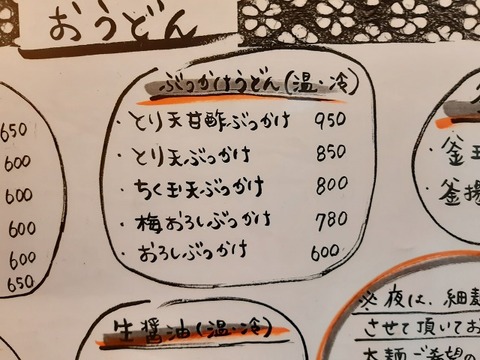 おうどん
650
600
600
600
600
650
ぶっかけうどん(温・冷)
・とり天甘酢ぶっかけ 950
・とり天ぶっかけ 850
・ちく玉天ぶっかけ 800
・梅おろしぶっかけ 780
・おろしぶっかけ 600
・釜玉
・釜揚
生醤油(温・冷)
※夜は、細麺
させて頂いてお
太麺ご希望の